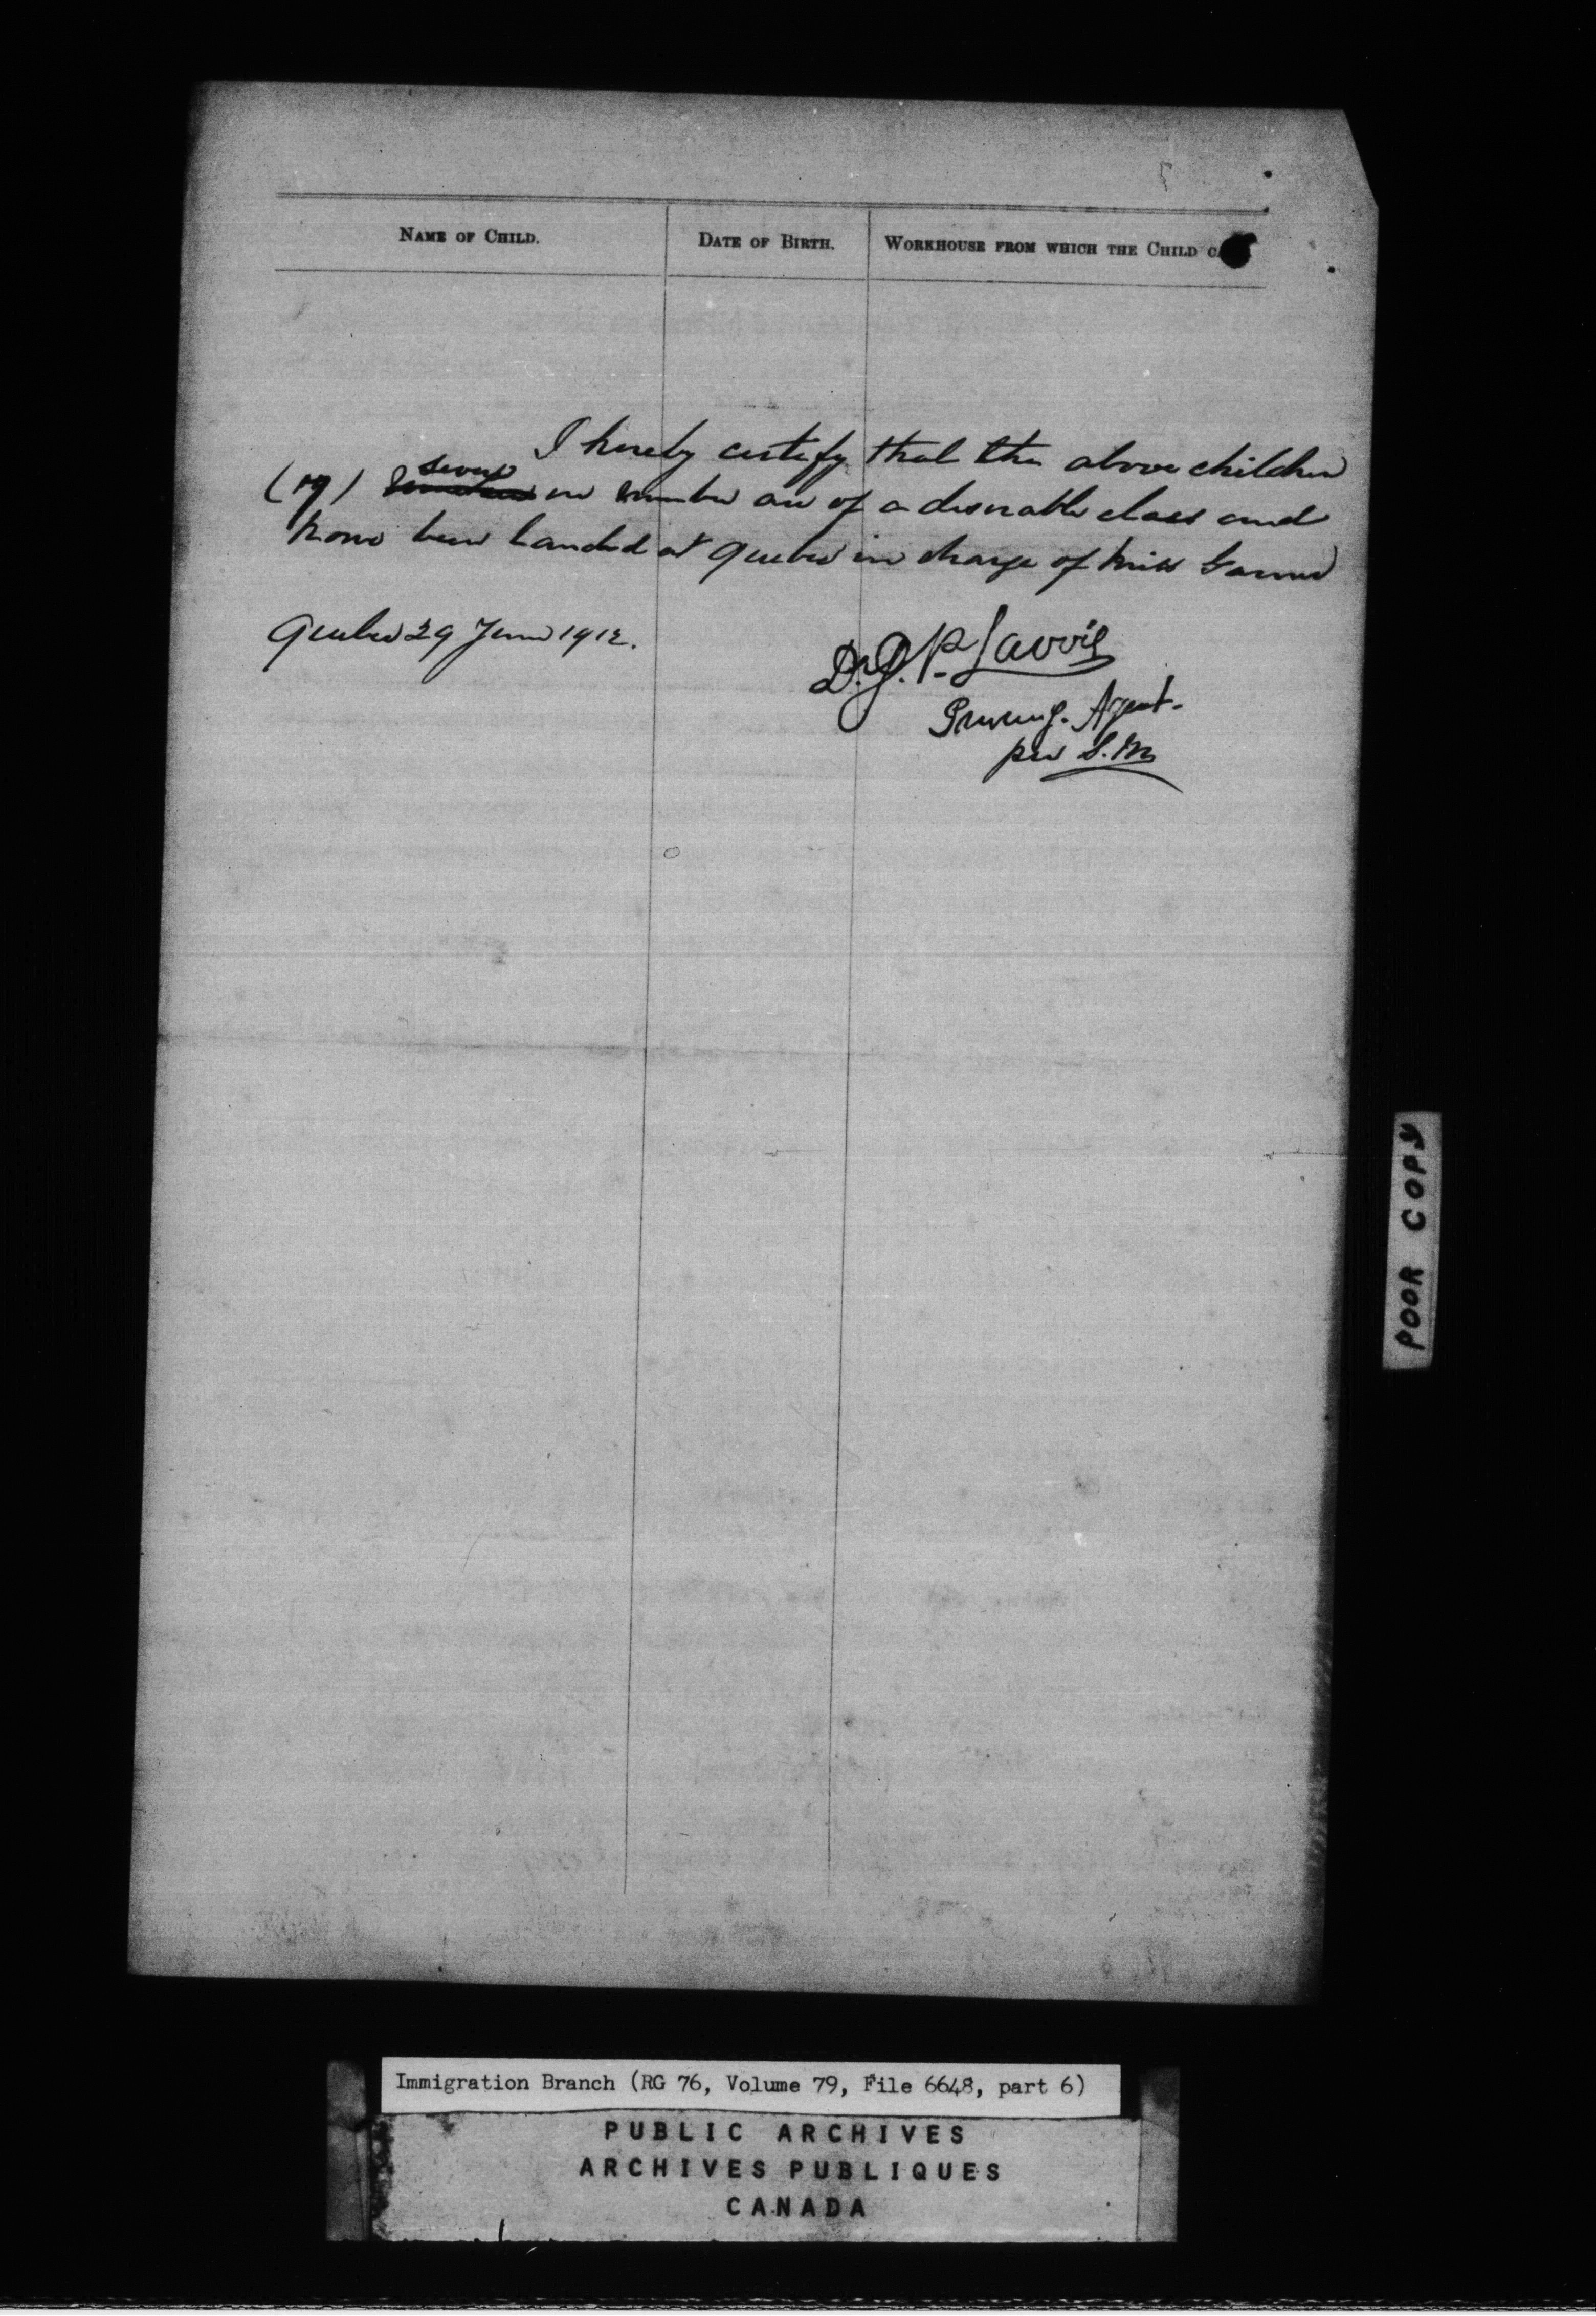 NAME OF CHILD. DATE OF BIRTH. WORKHOUSE FROM WHICH THE CHILD
I hereby certify that the above children
seven
in number are of a desirable class and
have been landed at Quebec in charge of Miss
Quebec 29 June 1912.
Dr. J. P. Lavoie
Agent.
per S. M
POOR COPY
Immigration Branch (RG 76, Volume 79, File 6648, part 6)
PUBLIC ARCHIVES
ARCHIVES PUBLIQUES
CANADA